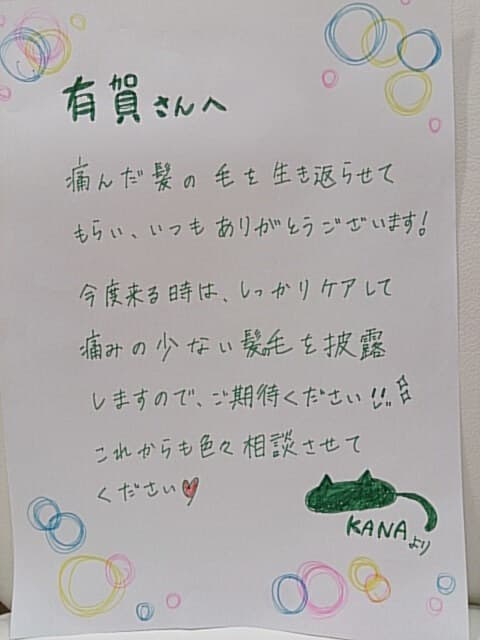 有賀さんへ
痛んだ髪の毛を生き返らせて
もらい、いつもありがとうございます!
今度来る時は、しっかりケアして
痛みの少ない髪の毛を披露
しますので、ご期待ください!!
これからも色々相談させて
ください
KANAより